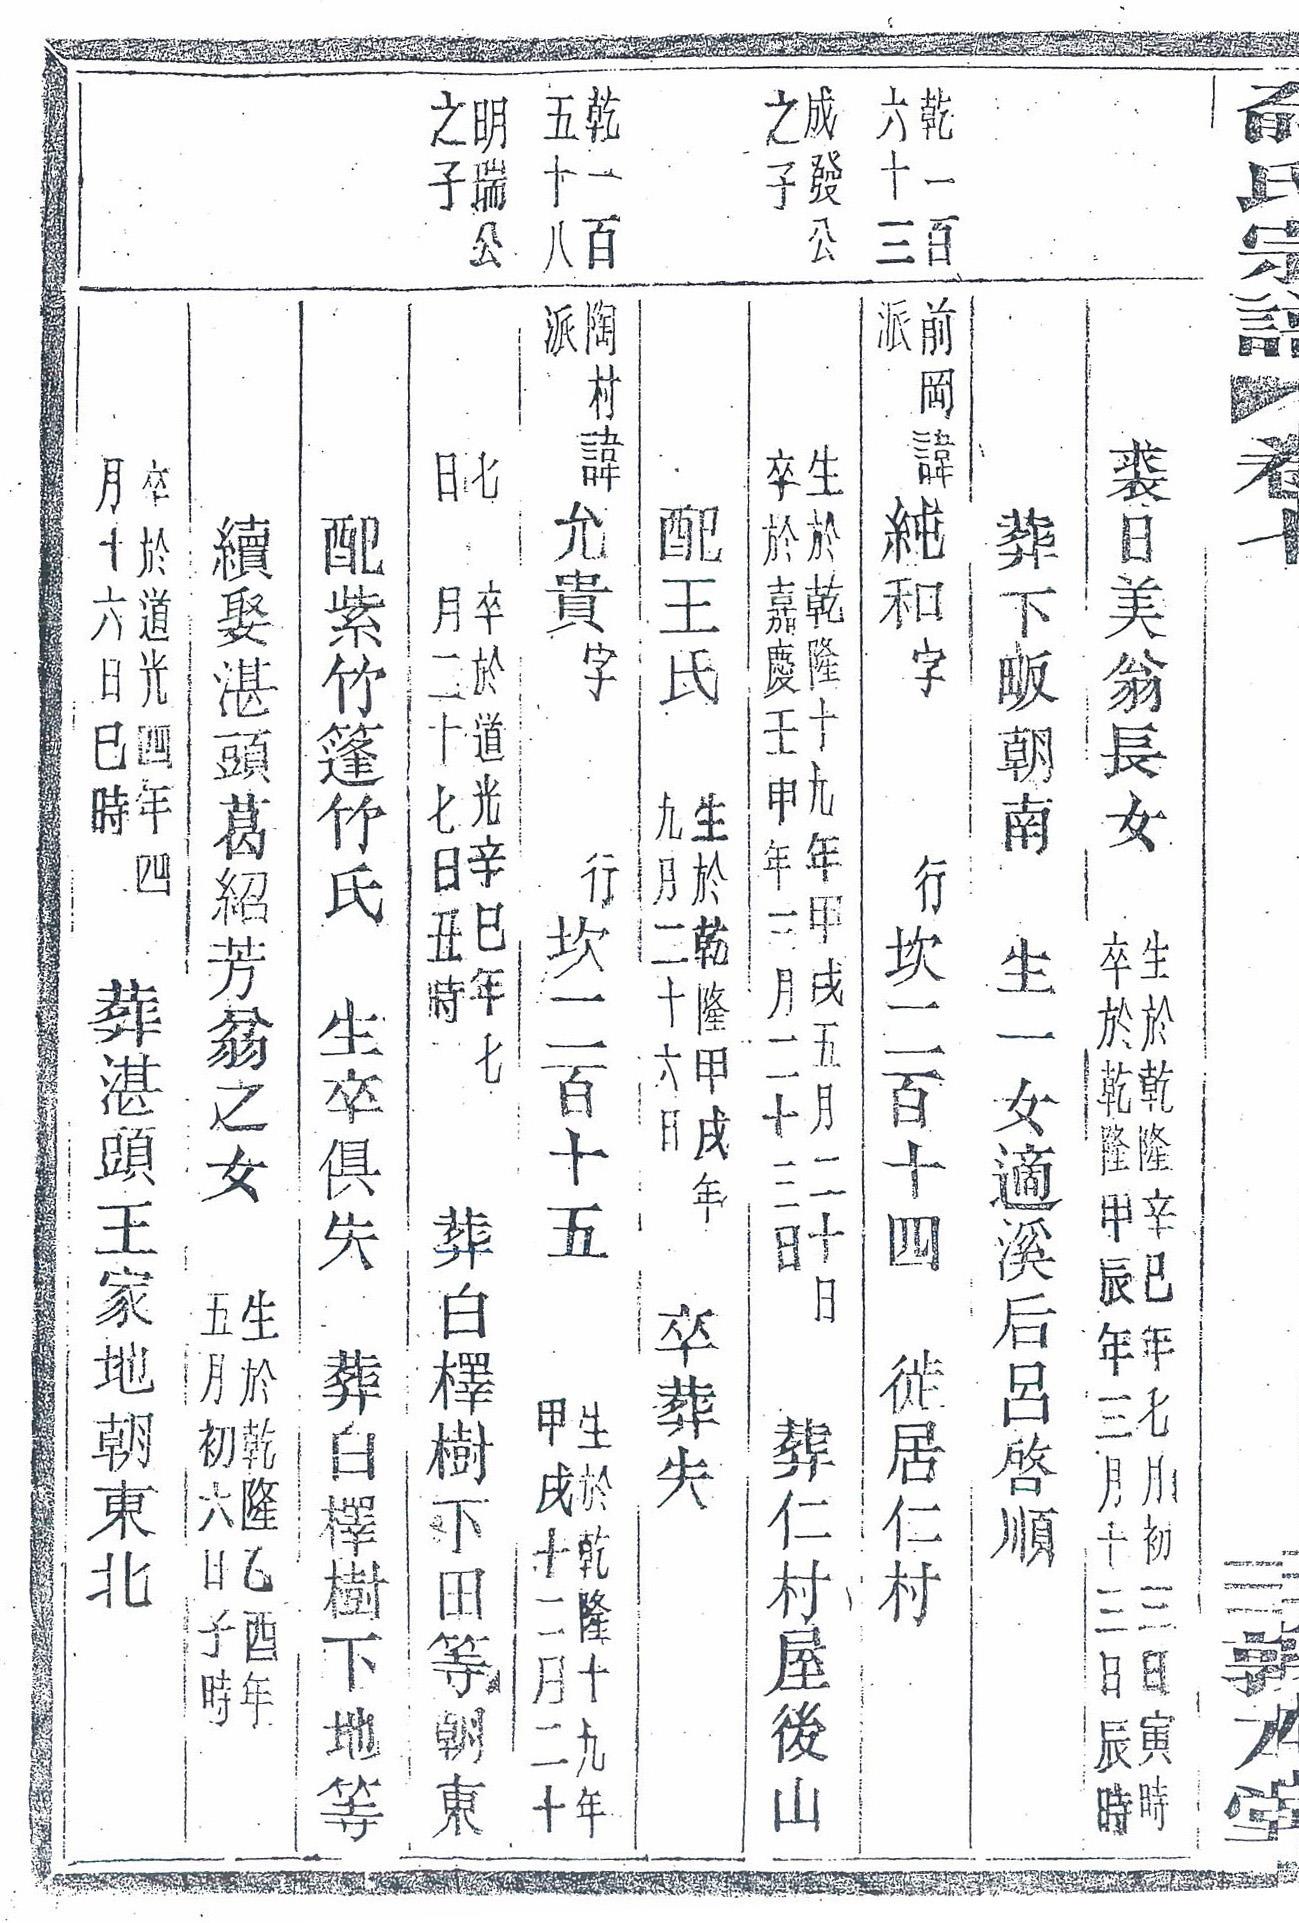 俞氏宗譜
卷十
敦本堂
裘日美翁長女
生於乾隆辛巳年七月初三日寅時
卒於乾隆甲辰年三月十三日辰時
葬下畈朝南 生一女適溪后呂啓順
乾一百
六十三
前岡
派
諱純和字 行坎二百十四 徙居仁村
成發公
之子
生於乾隆十九年甲戌五月二十日
卒於嘉慶壬申年三月二十三日
葬仁村屋後山
配王氏
生於乾隆甲戌年
九月二十六日
卒葬失
乾一百
五十八
陶村
派
諱允貴字 行坎二百十五
生於乾隆十九年
甲戌十二月二十
明瑞公
之子
七
日
卒於道光辛巳年七
月二十七日丑時
葬白檡樹下田等朝東
配紫竹篷竹氏 生卒俱失 葬白檡樹下地等
續娶湛頭葛紹芳翁之女
生於乾隆乙酉年
五月初六日子時
卒於道光四年四
月十六日巳時
葬湛頭王家地朝東北